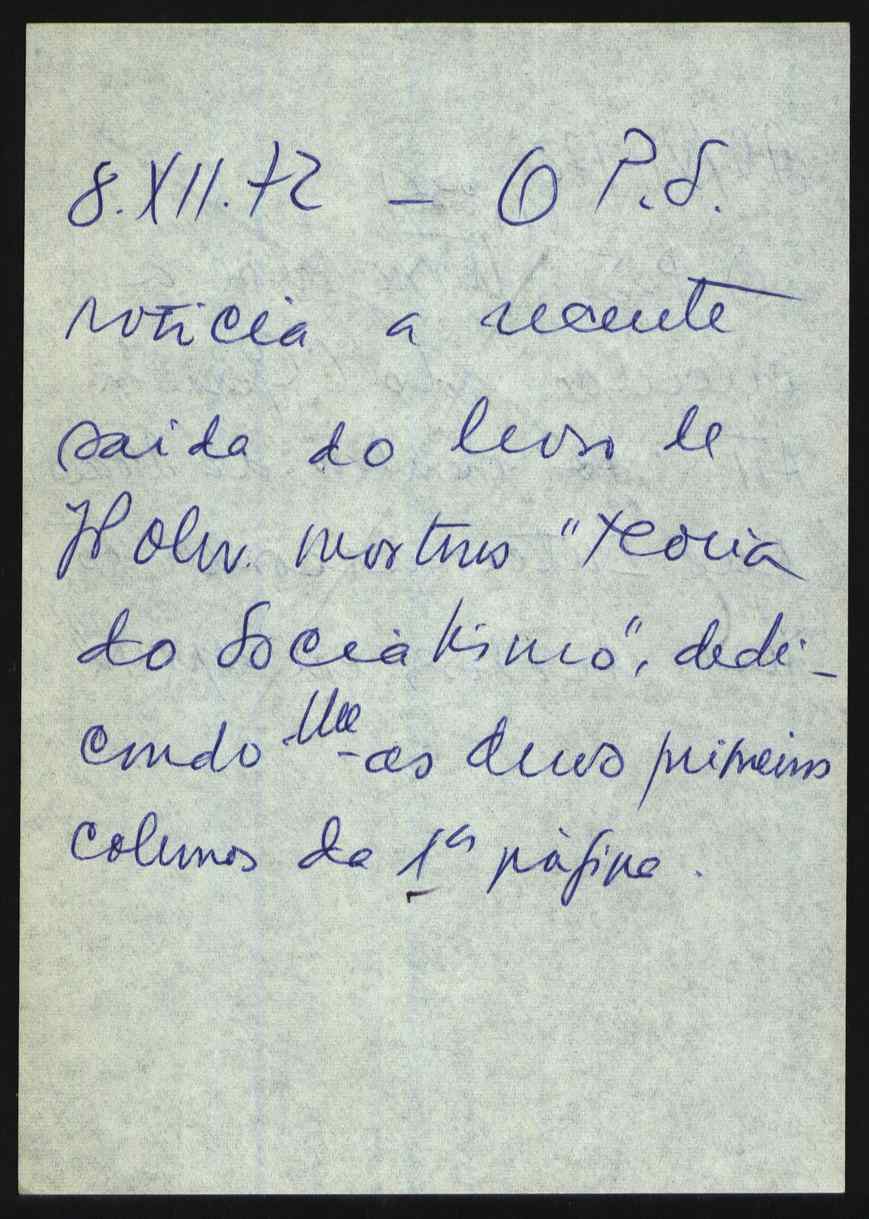 8.XII.72 - O P.S.
noticia a recente
saida do livro de
H Oliv. Martins "Teoria
do Socialismo", dedi-
cando-lhe as duas primeiras
colunas da 1ª página.